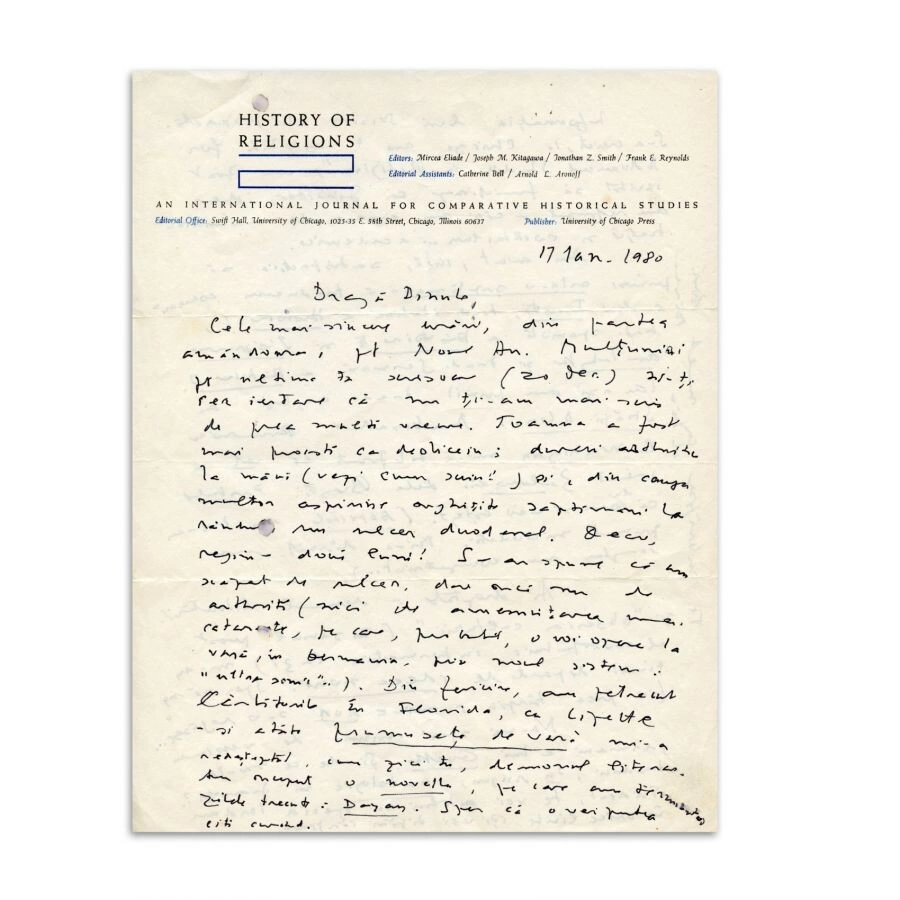 HISTORY OF
RELIGIONS
Editors: Mircea Eliade / Joseph M. Kitagawa / Jonathan Z. Smith / Frank E. Reynolds
Editorial Assistants: Catherine Bell / Arnold L. Aronoff
AN INTERNATIONAL JOURNAL FOR COMPARATIVE HISTORICAL STUDIES
Editorial Office: Swift Hall, University of Chicago, 1025-35 E. 58th Street, Chicago, Illinois 60637 Publisher: University of Chicago Press
17 Ian. 1980
Dragă Dinule,
Cele mai sincere urări, din partea
amândurora, pt Noul An. Mulțumiri
pt ultima ta scrisoare (20 dec.)
iertare că nu ți-am mai scris
de prea multă vreme. Toamna a fost
mai proastă ca deobicei; dureri
la mâini (vezi cum scriu!) și, din cauza
multor aspirine înghițite săptămâni la
rându un ulcer duodenal. Deci,
regim - două luni! S-ar spune că am
scăpat de ulcer, dar nici nu de
arthrită (nici de amenințarea unei
cataracte, pe care, probabil, o voi opera la
vară, în Germania, prin noul sistem:
"ultra sonic"..). Din fericire, am petrecut
în Florida, cu Lizette
- și atâta frumusețe de vară mi-a
redeșteptat, cum zici tu, demonul literar.
Am început o nuvella, pe care am
zilele trecute: Dayan. Sper că o vei putea
citi curând.